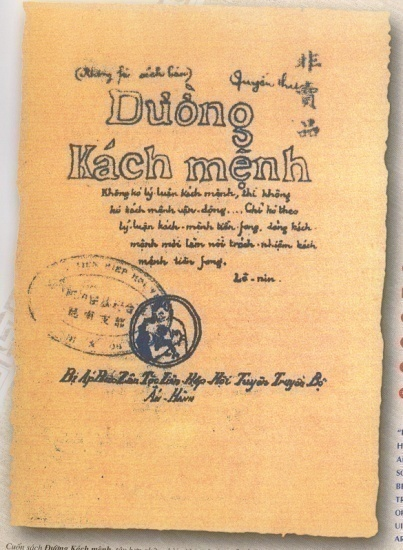 (Không fải sách bán)
Quyển thứ
非
賣
品
Duồng
Kách mệnh
Không kó lý luận kách mệnh, thì không
kó kách mệnh vận-động.... Chỉ kó theo
lý luận kách-mệnh tiền fong, đảng kách
mệnh mới làm nổi trách-nhiệm kách
mệnh tiền fong.
Lê-nin.
Bị Áp Bức Zân Tộc Liên Hiệp Hội Tuyên Truyền Bộ
Ấn-Hành
Cuốn sách Đường Kách mệnh